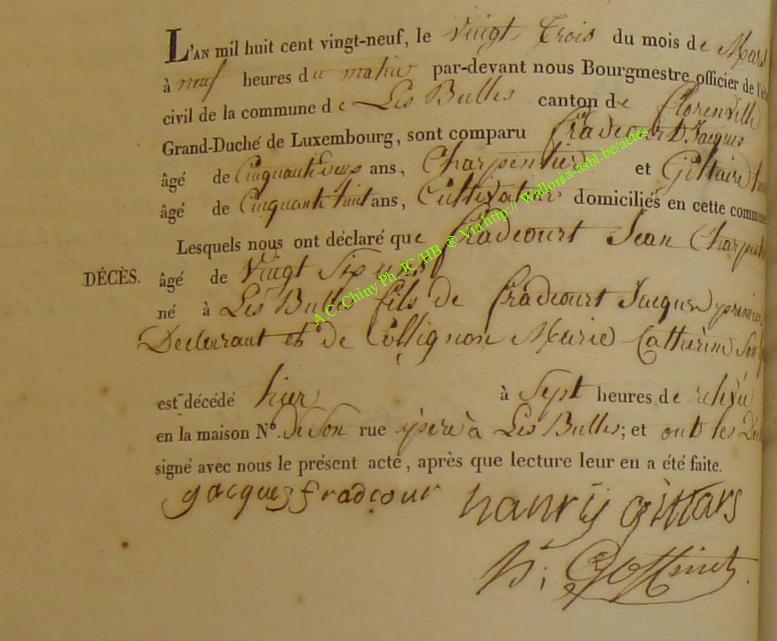 L'AN mil huit cent vingt-neuf, le vingt trois du mois de Mars
à neuf heures du matin par-devant nous Bourgmestre officier de l'é
civil de la commune de Les Bulles canton de Florenville
Grand-Duché de Luxembourg, sont comparu fradcourt Jacques
âgé de Cinquante ans, Charpentier et Gillaire
âgé de Cinquante huit ans, Cultivateur domiciliés en cette commun
Lesquels nous ont déclaré que fradcourt Jean Charpent
DÉCÈS. âgé de Vingt Six ans
né à Les Bulles fils de fradcourt Jacques premier
Declarant et de Collignon Marie Catherine Son
est décédé hier à Sept heures de relevée
en la maison N°. de Son rue père à Les Bulles; et ont les Dé
signé avec nous le présent acte, après que lecture leur en a été faite.
Jacques fradcour hanrÿ gillars
A.C. Chiny Ph. JC/HB ® Via http://Wallonia-asbl.be/actes